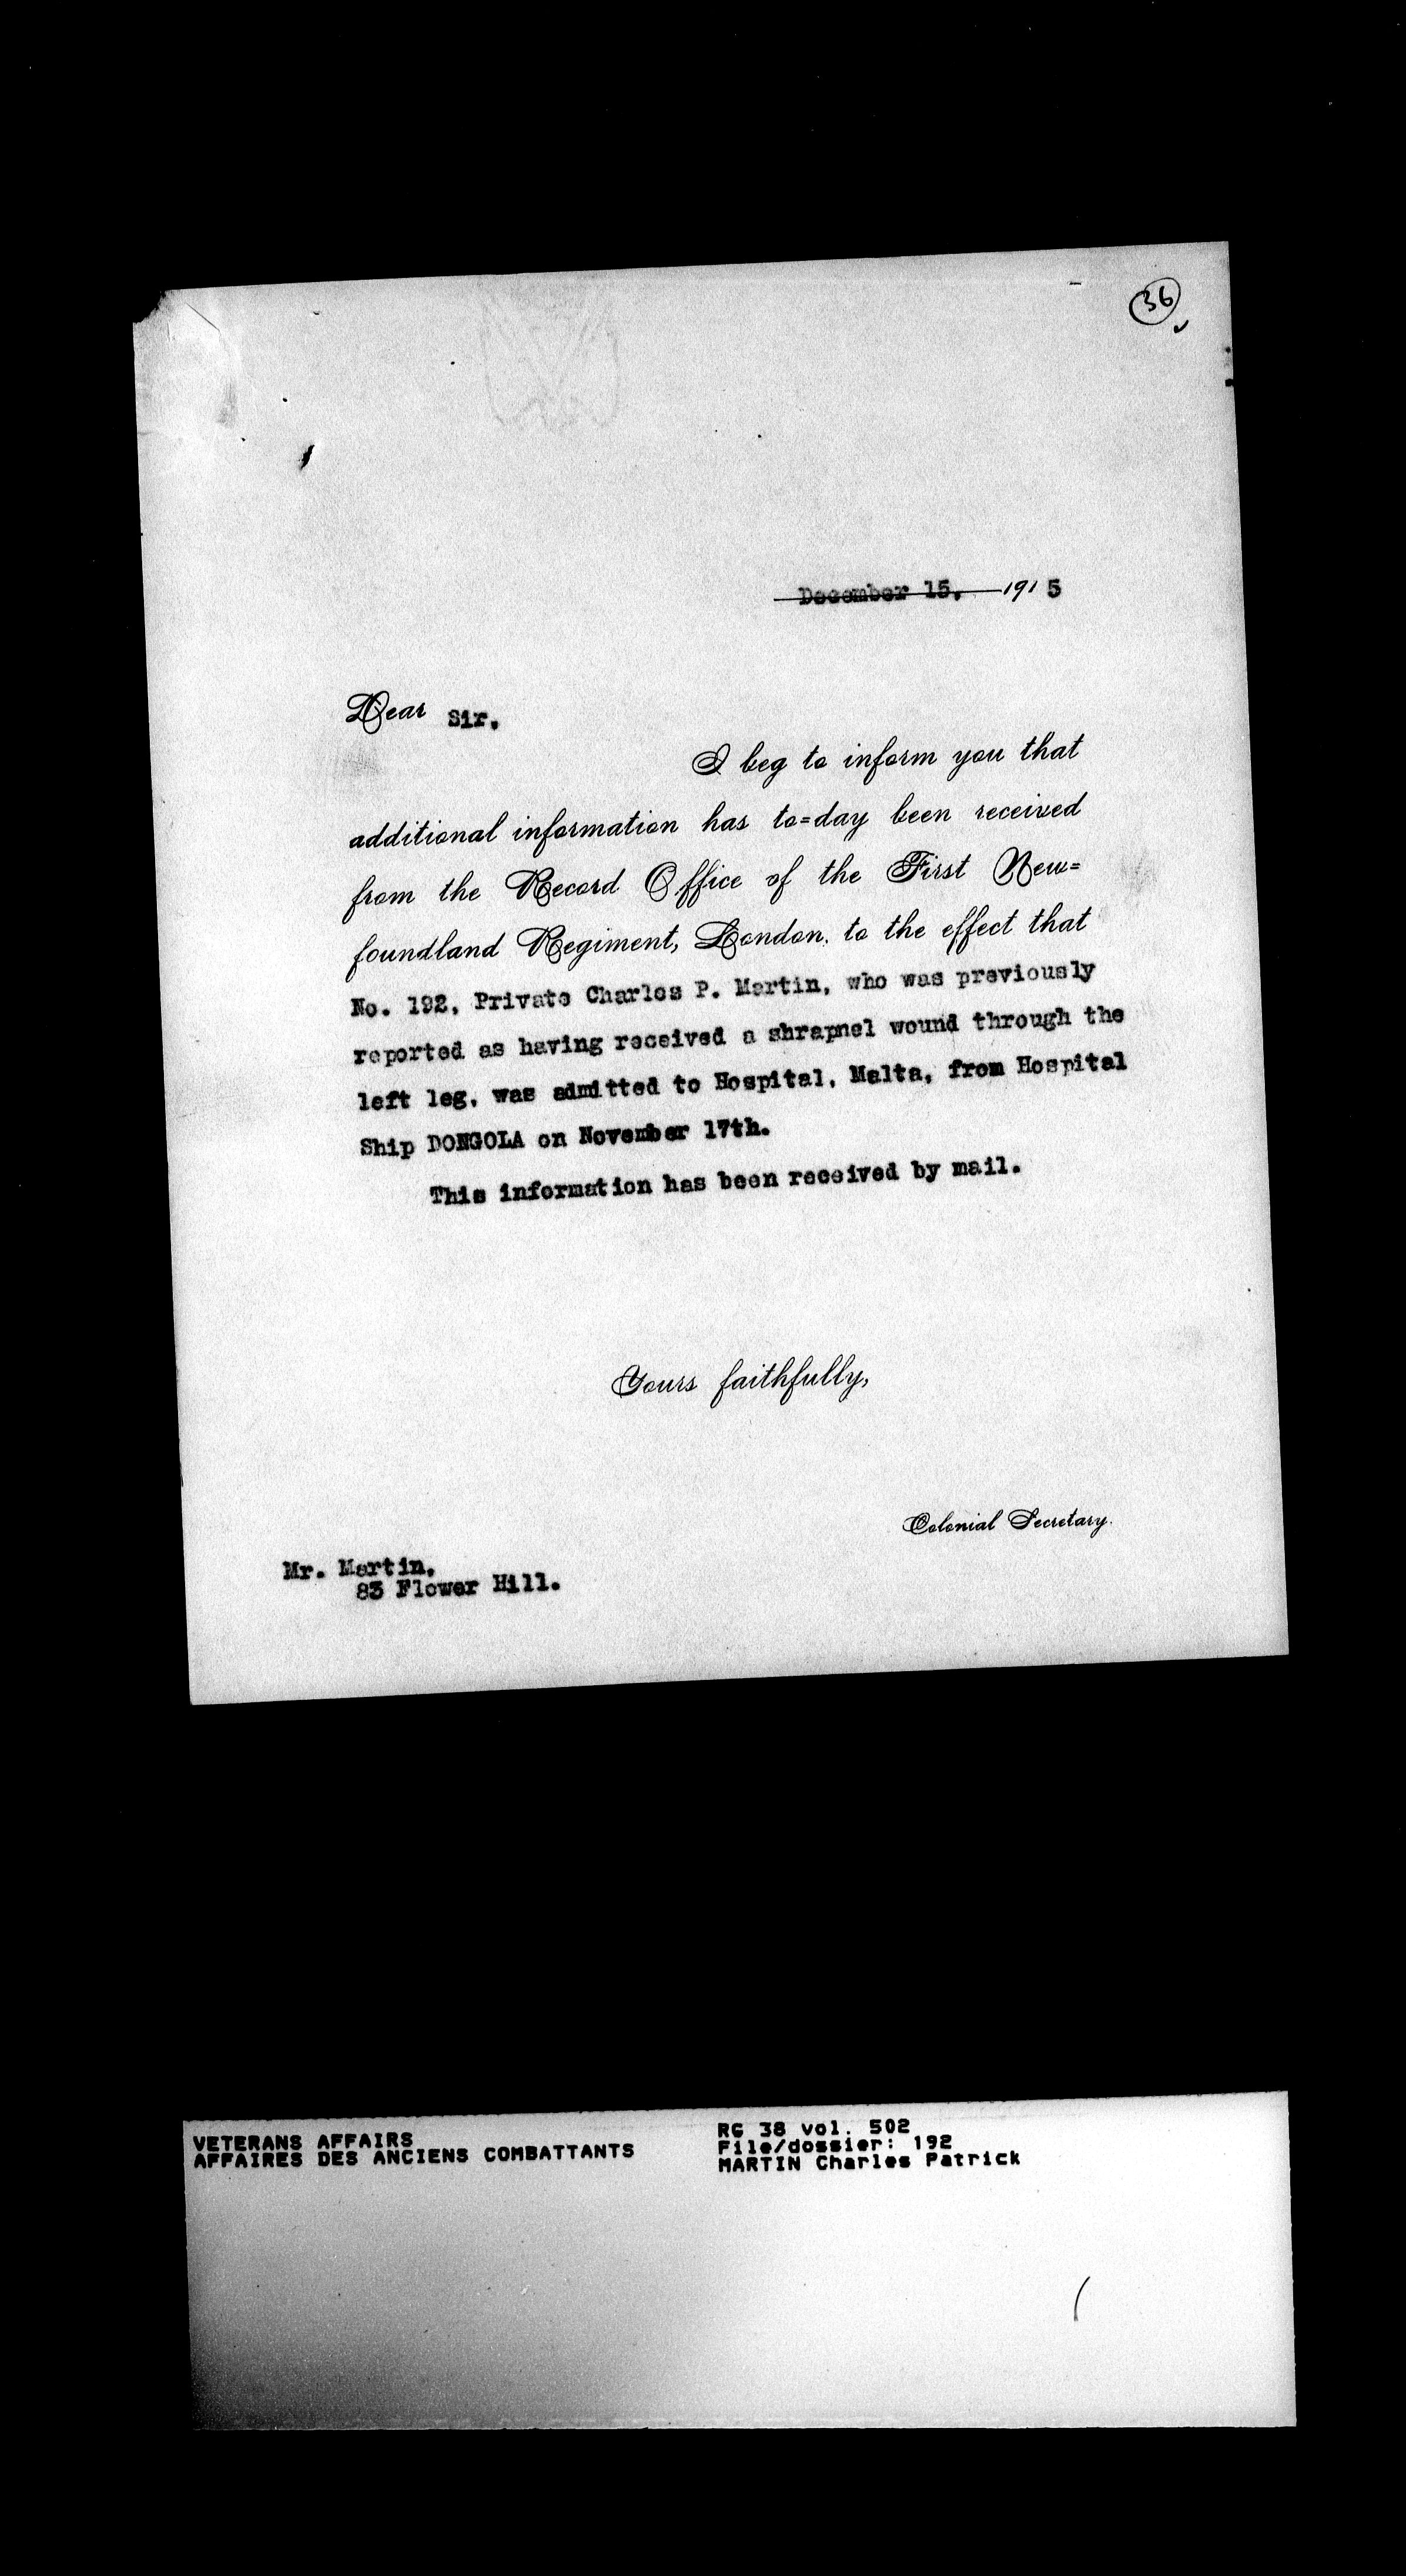 36
December 15, 1915
Dear Sir,
I beg to inform you that
additional information has to=day been received
from the Record Office of the First New=
foundland Regiment, London, to the effect that
No. 192, Private Charles P. Martin, who was previously
reported as having received a shrapnel wound through the
left leg, was admitted to Hospital, Malta, from Hospital
Ship DONGOLA on November 17th.
This information has been received by mail.
Yours faithfully,
Colonial Secretary.
Mr. Martin,
83 Flower Hill.
VETERANS AFFAIRS
AFFAIRES DES ANCIENS COMBATTANTS
RG 38 vol. 502
File/dossier: 192
MARTIN Charles Patrick